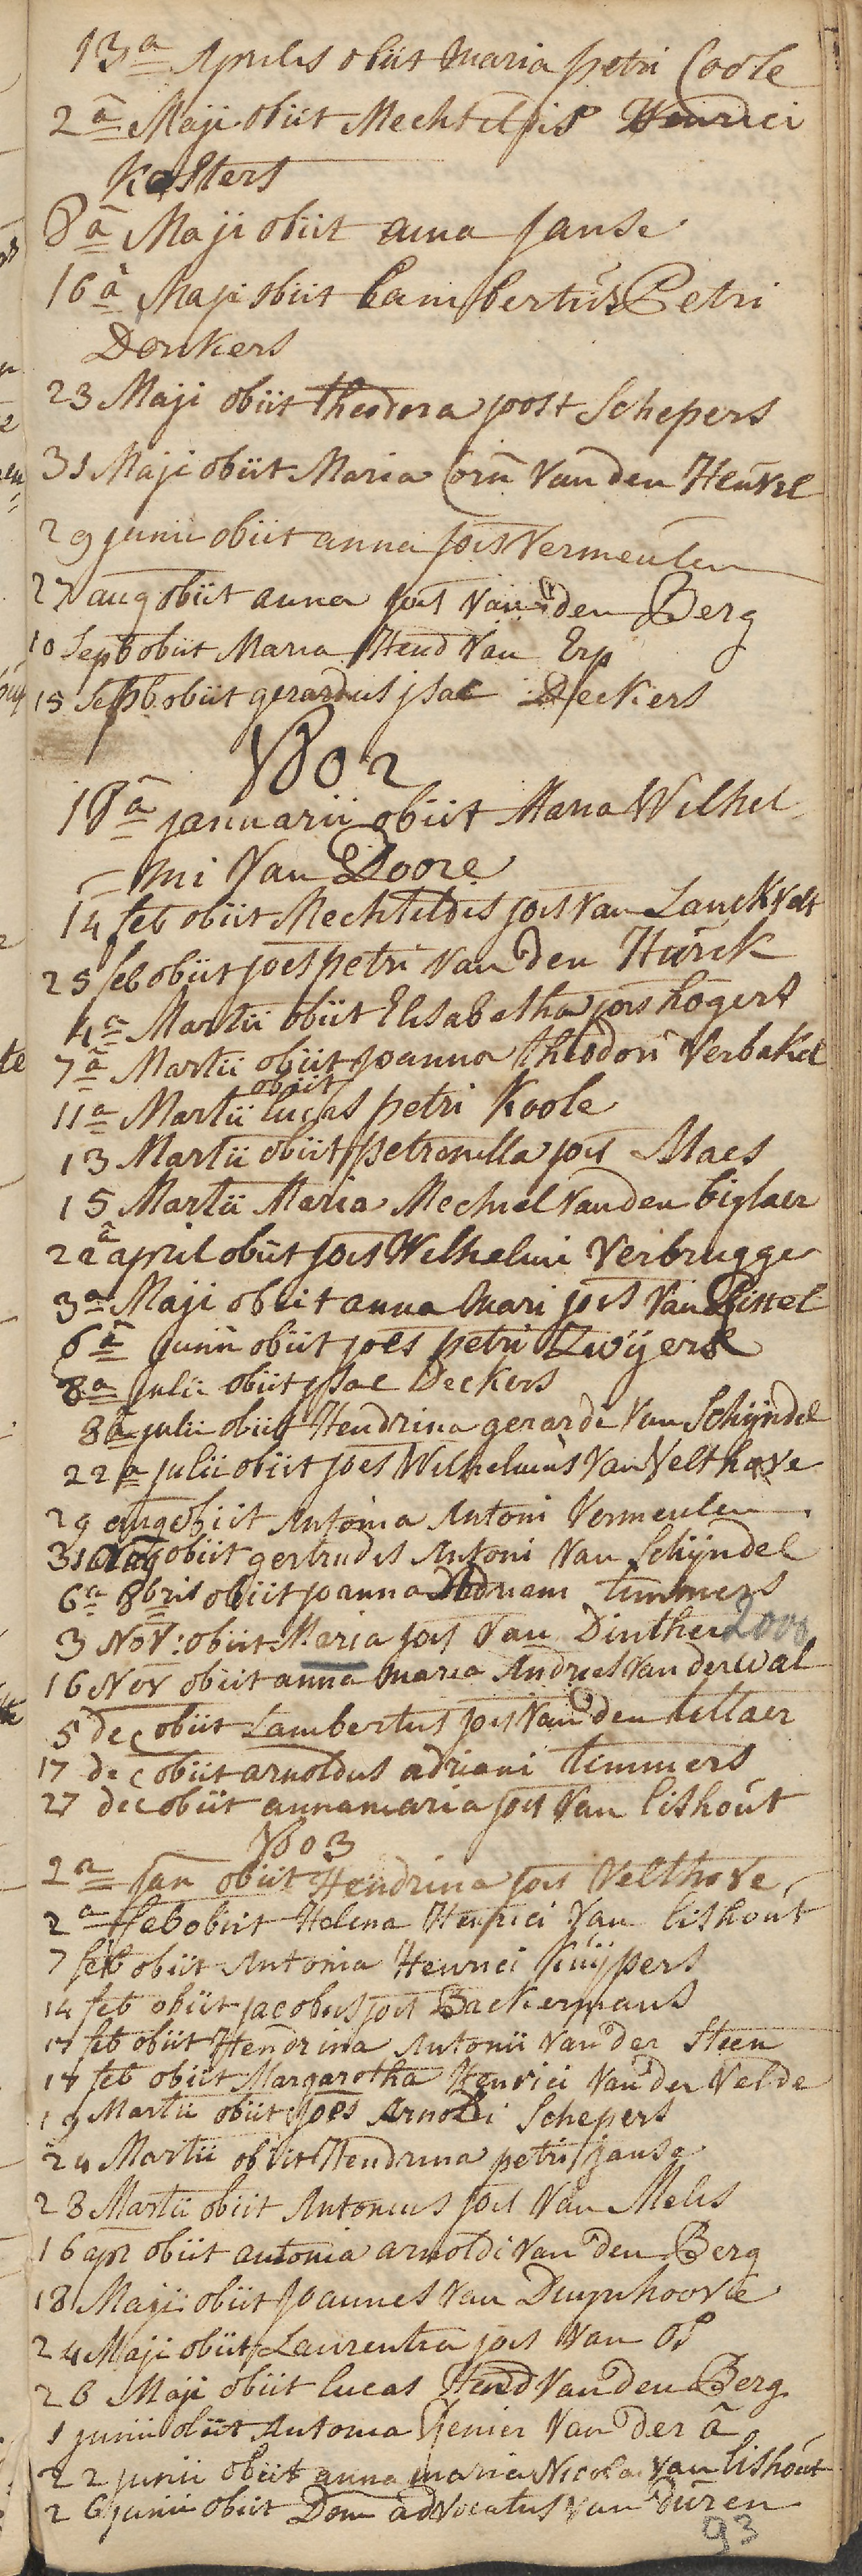 13a Aprilis obiit Maria petri Coole
2a Maji obiit Mechtildis Henrici
Kosters
8a Maji obiit anna Janse
16a Maji obiit Lambertus Petri
Donkers
23 Maji obiit theodora joost Schepers
31 Maji obiit Maria Corn Van den Heuvel
29 junii obiit anna jois Vermeulen
27 aug obiit anna jois Van den Berg
10 Septb obiit Maria Hend Van Erp
15 Septb obiit gerardus jsac Deckers
1802
18a januarii obiit Maria Wilhel
= mi Van Doore
14 feb obiit Mechtildis jois Van Lanckvelt
25 feb obiit joes petri Van den Hurck
4a Martii obiit Elisabetha jois hogers
7a Martii obiit Joanna theodori Verbakel
11a Martii obiit lucas petri Koole
13 Martii obiit petronella jois Maes
15 Martii Maria Mechiel Van den biglaer
22a april obiit jois Wilhelmi Verbrugge
3a Maji obiit anna Mari jois Van Gissel
6a junii obiit joes petri Zwijers
8a julii obiit jsac Deckers
8a julii obiit Hendrina gerardi Van Schijndel
22a julii obiit joes Wilhelmus Van Velthove
29 aug obiit Antonia Antoni Vermeulen
31 aug obiit gertrudis Antoni Van Schijndel
6a 8bris obiit joanna Adriani timmers
3 Nov: obiit Maria jois Van Dinther 2000
16 Nov obiit anna maria Andries Van der Wal
5 dec obiit Lambertus jois Van den tillaer
17 dec obiit arnoldus adriani timmers
27 dec obiit annamaria jois Van lishout
1803
2a jan obiit Hendrina jois Velthove
2a feb obiit Helena Henrici Van lishout
7 feb obiit Antonia Henrici Kuijpers
14 feb obiit jacobus jois Backermans
17 feb obiit Hendrina Antonii Van der Steen
17 feb obiit Margarotha Henrici Van der Velde
19 Martii obiit joes Arnoldi Schepers
24 Martii obiit Hendrina petri janse
28 Martii obiit Antonius jois Van Melis
16 apr obiit antonia arnoldi Van den Berg
18 Maji obiit Joannes Van Duynhoove
24 Maji obiit Laurentia jois Van Os
26 Maji obiit lucas Hend Van den Berg
1 junii obiit Antonia Renier Van der a
22 junii obiit anna maria Nicolai Van lishout
26 junii obiit Dom advocatus Van Duren
93